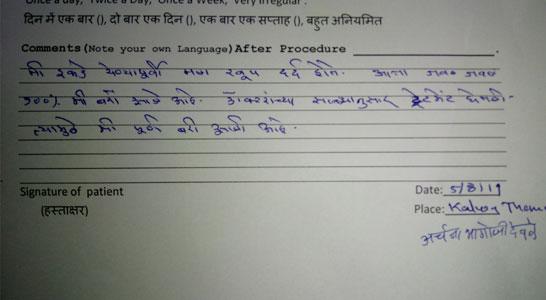 Once a day, Twice a Day, Once a Week, Very irregular.
दिन में एक बार (), दो बार एक दिन (), एक बार एक सप्ताह (), बहुत अनियमित
Comments (Note your own Language) After Procedure
मी इकडे येण्यापुर्वी मला खूप दर्द होते. आता जवळ जवळ
100% मी बरी आहे. डॉक्टरांच्या सल्ल्यानुसार ट्रेटमेंट घेतली.
त्यामुळे मी पूर्ण बरी आहे.
Signature of patient Date: 5/8/19
(हस्ताक्षर) Place: Kalyan Thane
अर्चना भागोजी देवळे